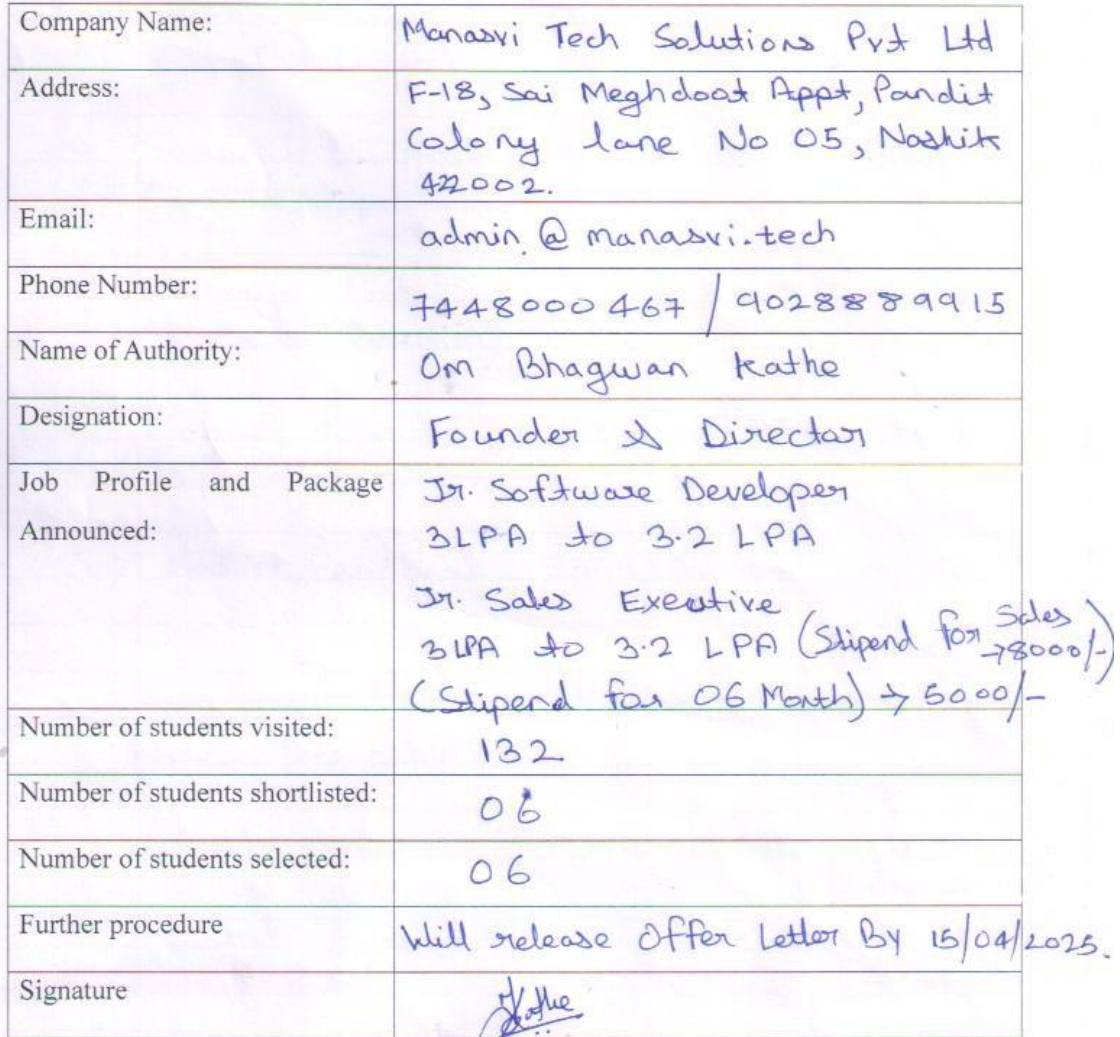 Company Name: Manasvi Tech Solutions Pvt Ltd
Address: F-18, Sai Meghdoot Appt, Pandit
Colony lane No 05, Nashik
422002.
Email: admin@manasvi.tech
Phone Number: 7448000467 / 9028889915
Name of Authority: Om Bhagwan Kathe
Designation: Founder & Director
Job Profile and Package Jr. Software Developer
Announced: 3LPA to 3.2 LPA
Jr. Sales Exeutive
3 LPA to 3.2 LPA (Stipend for Sales
→8000/-)
(Stipend for 06 Month) → 5000/-
Number of students visited: 132
Number of students shortlisted: 06
Number of students selected: 06
Further procedure Will release Offer Letter By 15/04/2025.
Signature Kathe